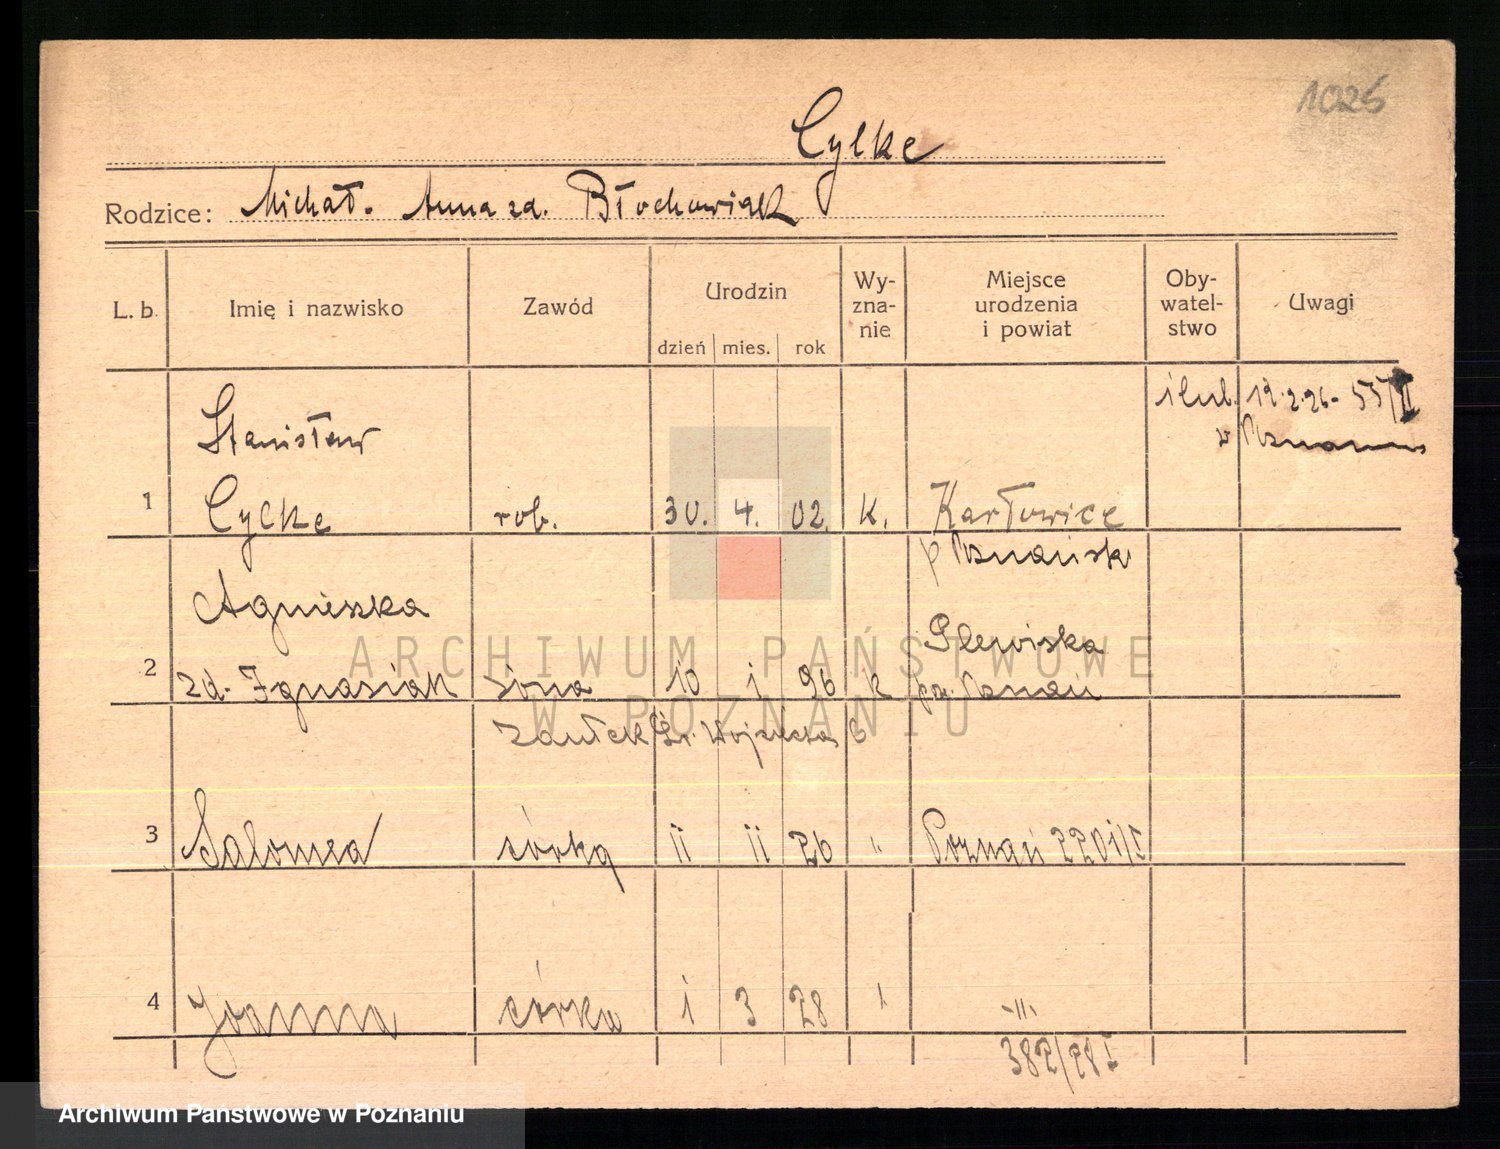 1026
Cylke
Rodzice: Michał. Anna zd. Błochowiak
L. b. Imię i nazwisko Zawód Urodzin Wy-zna-nie Miejsce urodzenia i powiat Oby-watel-stwo Uwagi
dzień mies. rok
ślub. 12.2.26 - 55/II
w Poznaniu
Stanisław
1 Cylke rob. 30. 4. 02. K. Karłowice
p Poznański
Agnieszka Plewiska
2 zd. Ignasiak żona 10 1 96 k pow. Poznań
Zaułek Św. Wojciecha 6
3 Salomea córka 11 11 26 " Poznań 2201/I
4 Joanna córka 1 3 28 -"-
382/28 I
ARCHIWUM PAŃSTWOWE
W POZNANIU
Archiwum Państwowe w Poznaniu